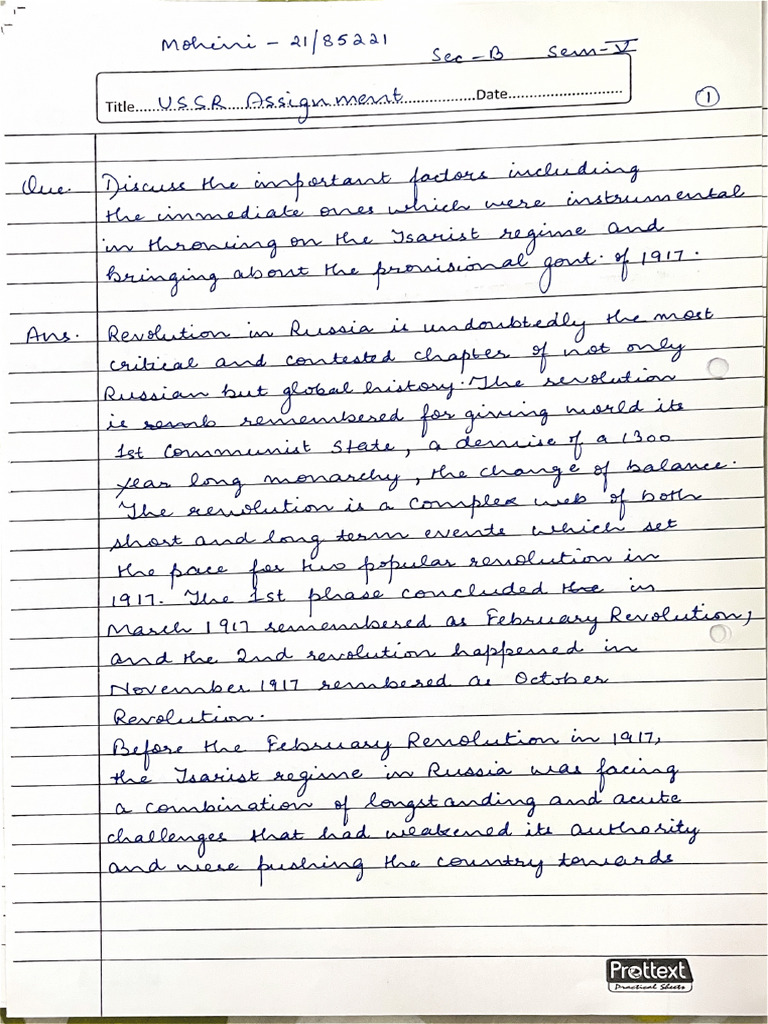 Mohini - 21/85221
Sec - B Sem - V
Title.....USSR Assignment.....Date.....
1
Que. Discuss the important factors including
the immediate ones which were instrumental
in throwing on the Tsarist regime and
bringing about the provisional govt. of 1917.
Ans. Revolution in Russia is undoubtedly the most
critical and contested chapter of not only
Russian but global history. The revolution
is remb remembered for giving world its
1st Communist State, a demise of a 1300
year long monarchy, the change of balance.
The revolution is a complex web of both
short and long term events which set
the pace for two popular revolution in
1917. The 1st phase concluded the in
March 1917 remembered as February Revolution,
and the 2nd revolution happened in
November 1917 rembered as October
Revolution.
Before the February Revolution in 1917,
the Tsarist regime in Russia was facing
a combination of longstanding and acute
challenges that had weakened its authority
and were pushing the country towards
Prottext
Practical Sheets